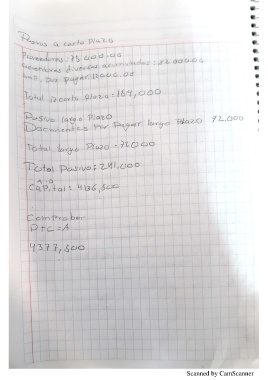 a corto Plazo
Proveedores: 75,000.00
diversos
Por Pagar
Total corto Plazo = 169,000
Pasivo largo Plazo
Documentos Por Pagar largo Plazo 72,000
Total largo Plazo = 72,000
Total Pasivo: 241,000
Capital: 4136,500
Comprobar
P+C=A
4377,500
Scanned by CamScanner